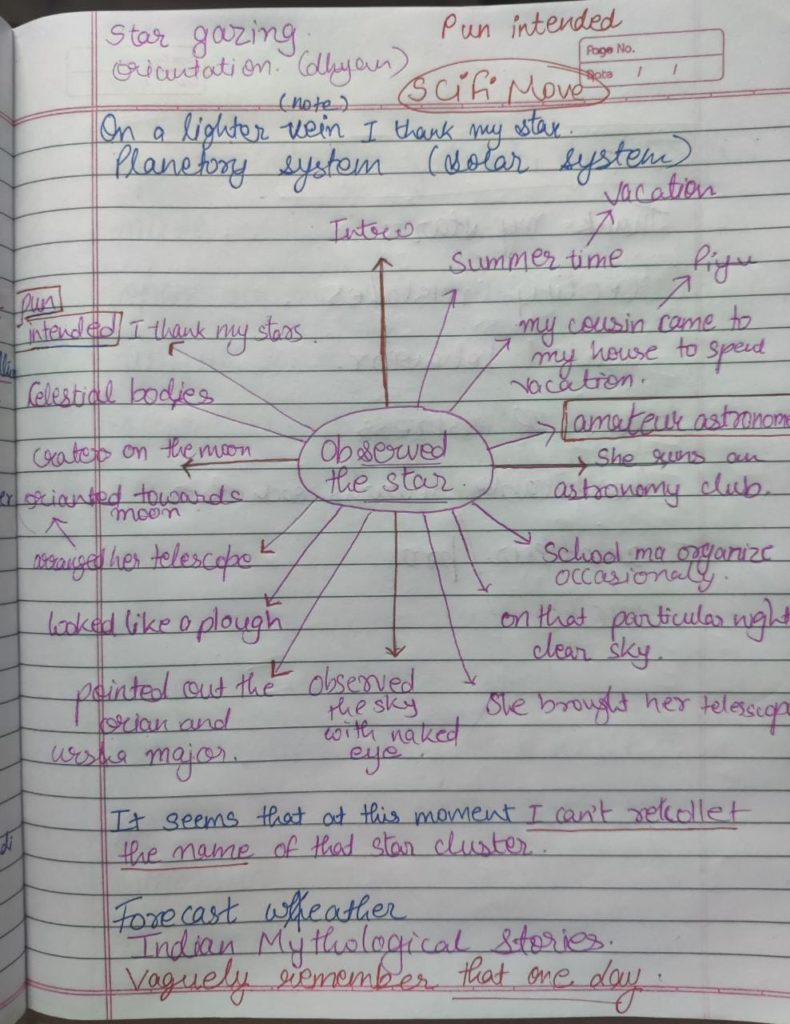 Star gazing.
Pun intended
oriantation. (dhyan)
Page No.
Date / /
SciFi Move
(note)
On a lighter vein I thank my star.
Planetory system (solar system)
vacation
Intro
Summer time
Piyu
pun
intended I thank my stars.
my cousin came to
my house to spend
vacation.
Celestial bodies
amateur astronome
Observed
the star.
crators on the moon
She runs an
astronomy club.
orianted towards
moon
arranged her telescope
School ma organize
occasionaly.
looked like a plough
on that particular night
clear sky.
pointed out the
orian and
ursha major.
observed
the sky
with naked
eye.
She brought her telescop
It seems that at this moment I can't rekollet
the name of that star cluster.
Forecast wheather
Indian Mythological stories.
Vaguely remember that one day.